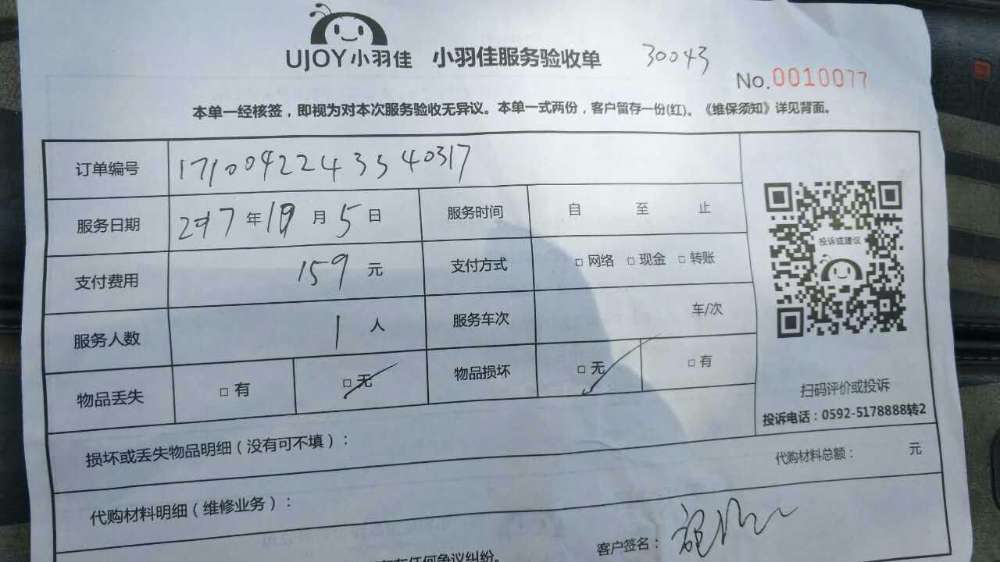 UJOY小羽佳 小羽佳服务验收单 30043
No.0010077
本单一经核签，即视为对本次服务验收无异议。本单一式两份，客户留存一份(红)。《维保须知》详见背面。
订单编号 17100422433540317
服务日期 2017年10月5日 服务时间 自 至 止
支付费用 159元 支付方式 □网络 □现金 □转账
服务人数 1人 服务车次 车/次
物品丢失 □有 □无 物品损坏 □无 □有
投诉或建议
扫码评价或投诉
投诉电话：0592-5178888转2
损坏或丢失物品明细（没有可不填）：
代购材料总额： 元
代购材料明细（维修业务）：
有任何争议纠纷。
客户签名：